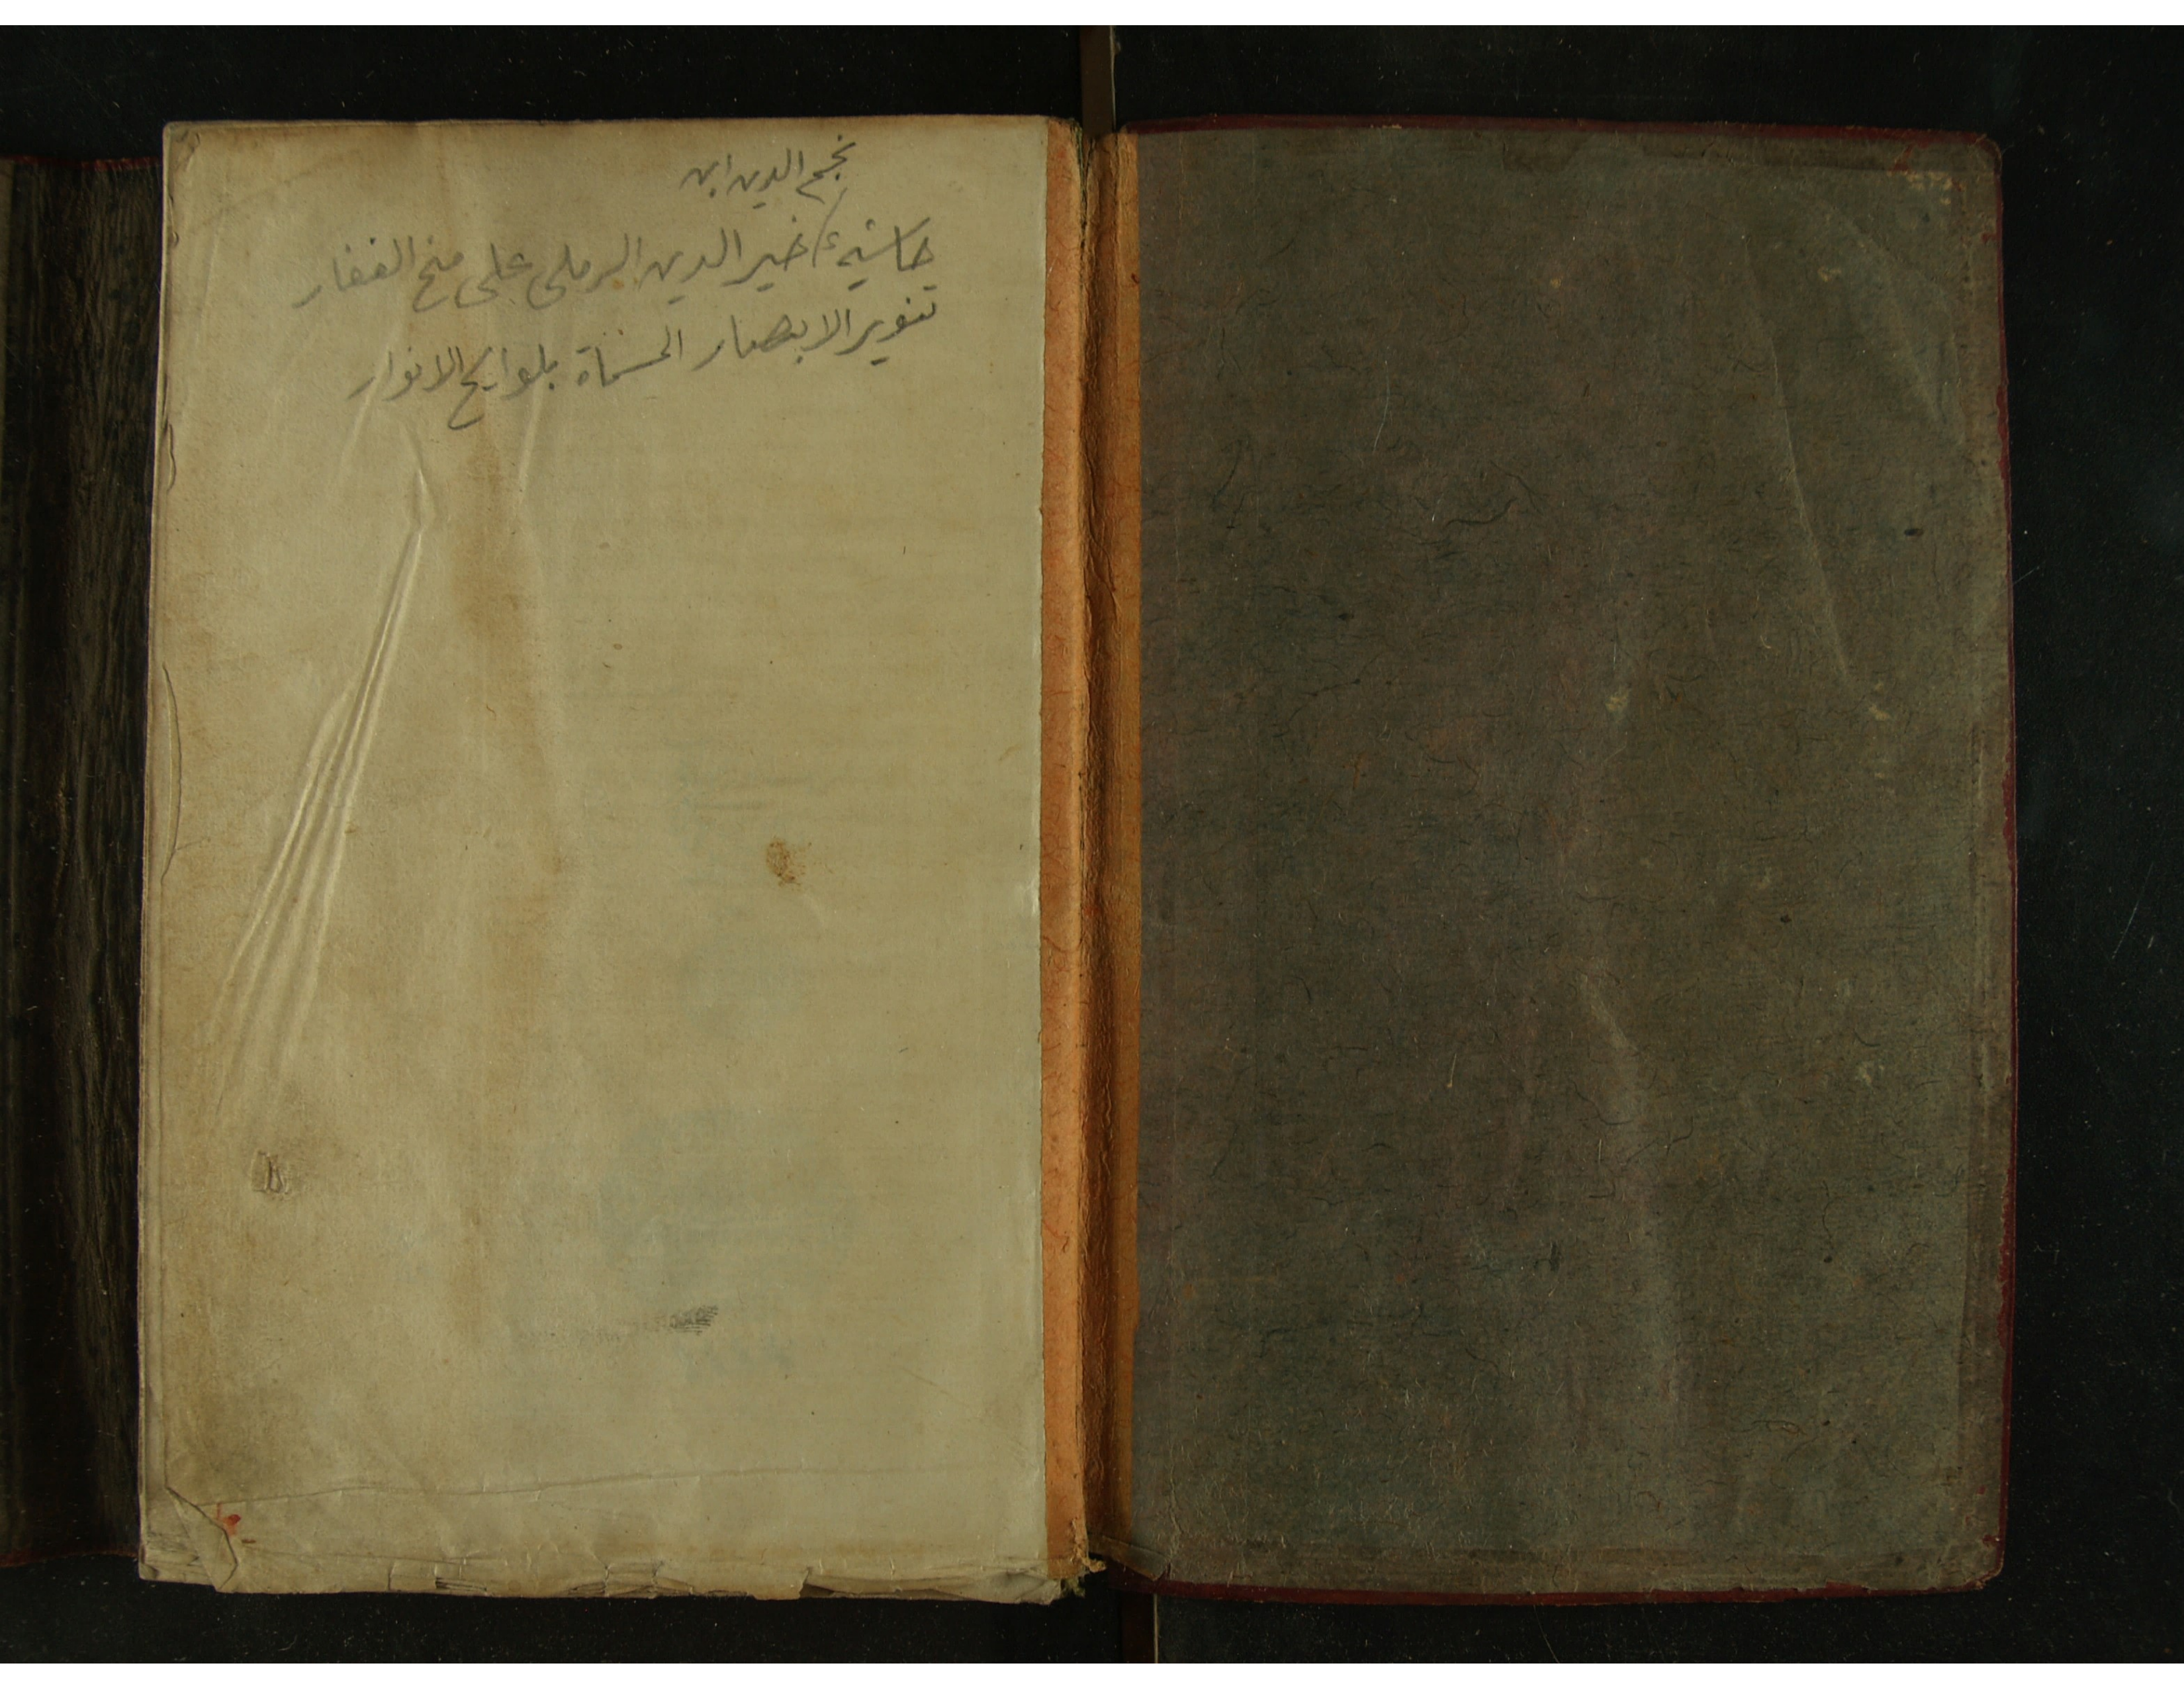 نجم الدين ابن
حاشية خير الدين الرملى على منح الغفار
تنوير الابصار المسماة بلوايح الانوار